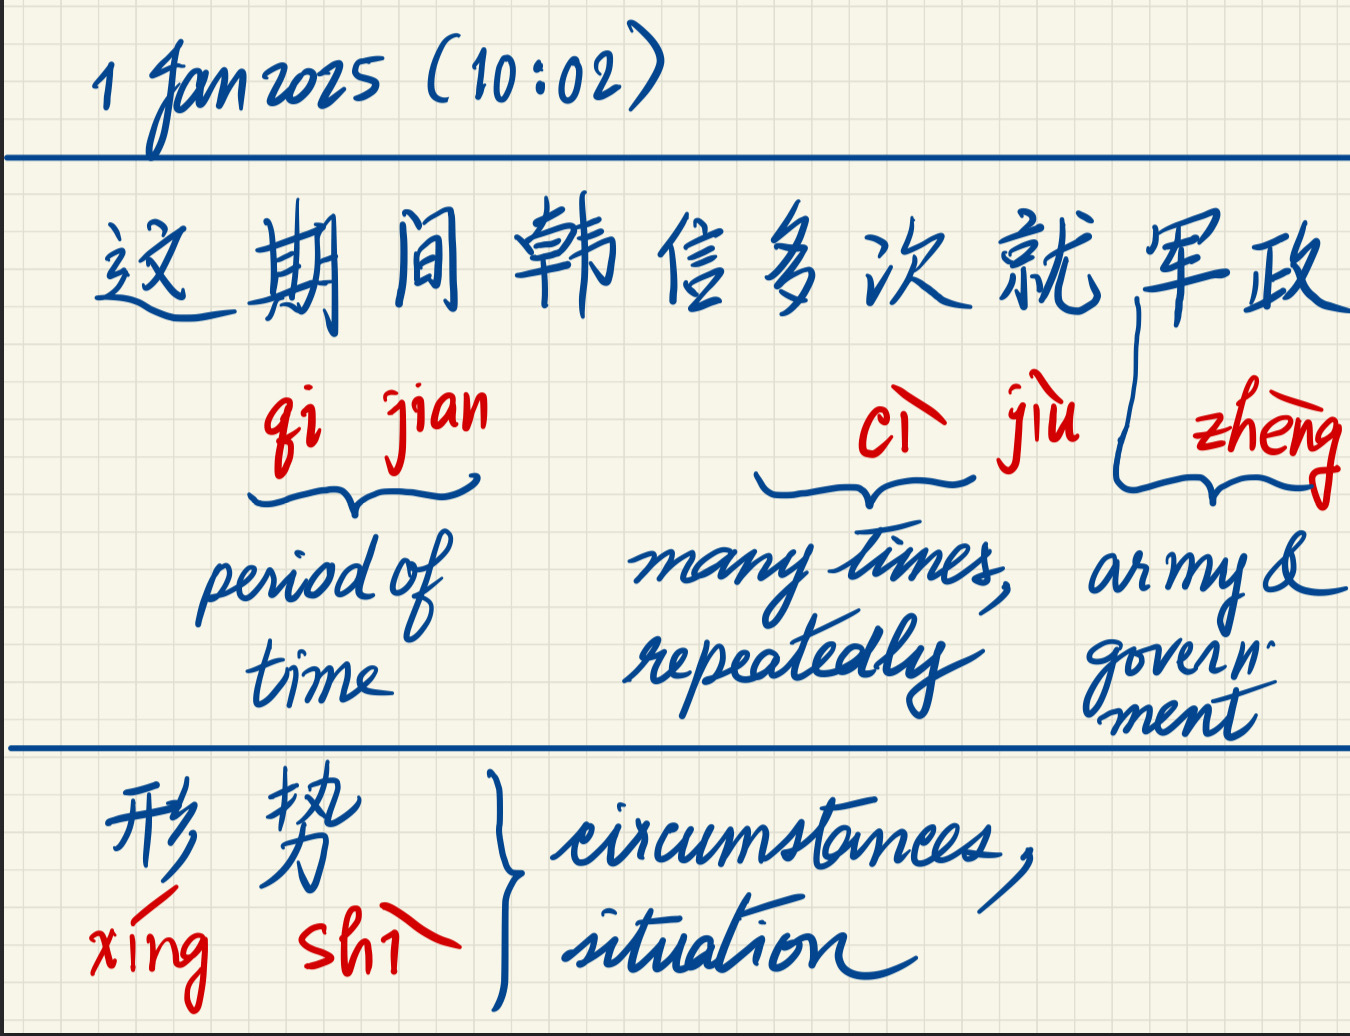 1 Jan 2025 (10:02)
这期间韩信多次就军政
qi jian cì jiù zhèng
period of many times, army &
time repeatedly govern-
ment
形势 circumstances,
xíng shì situation